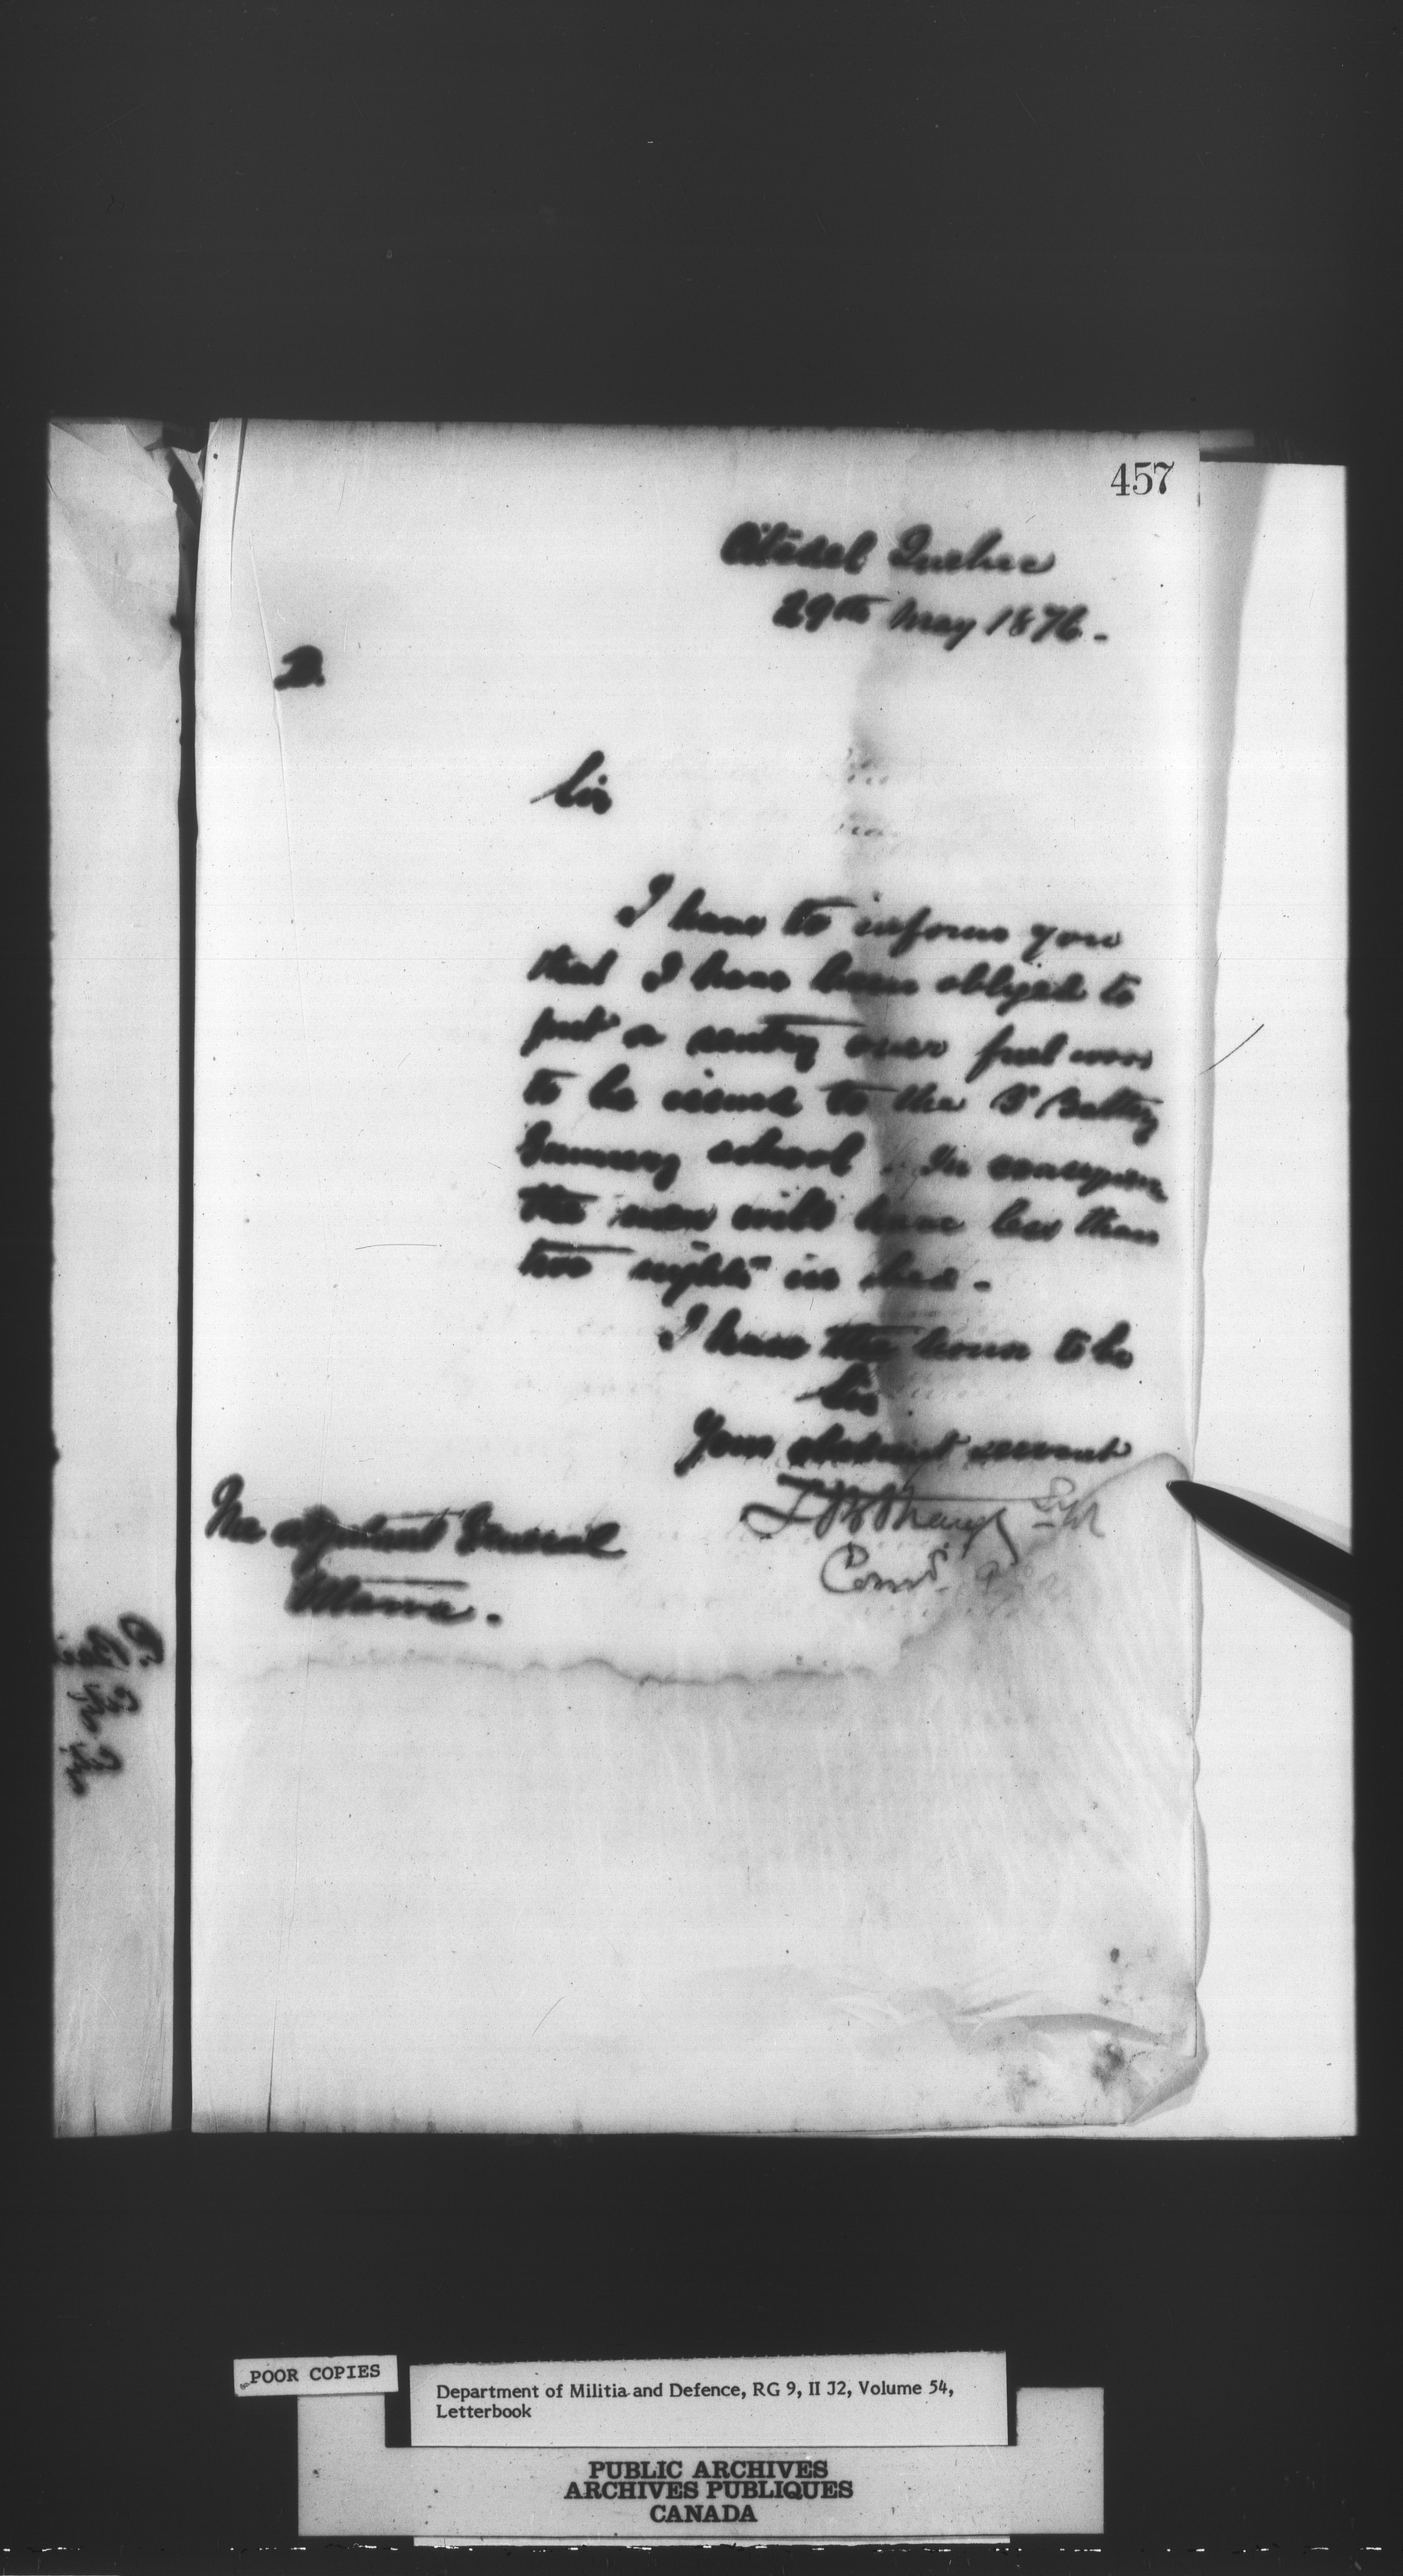 457
Citadel Quebec
29th May 1876.-
D.
Sir
I have to inform you
that I have been obliged to
put a sentry over fuel wood
to be issued to the B Battery
Gunnery school. In consequence
the men will have less than
two nights in bed -
I have the honor to be
Sir
Your obedient servant
T B Strange
Comd.
The Adjutant General
Ottawa.
POOR COPIES
Department of Militia and Defence, RG 9, II J2, Volume 54,
Letterbook
PUBLIC ARCHIVES
ARCHIVES PUBLIQUES
CANADA